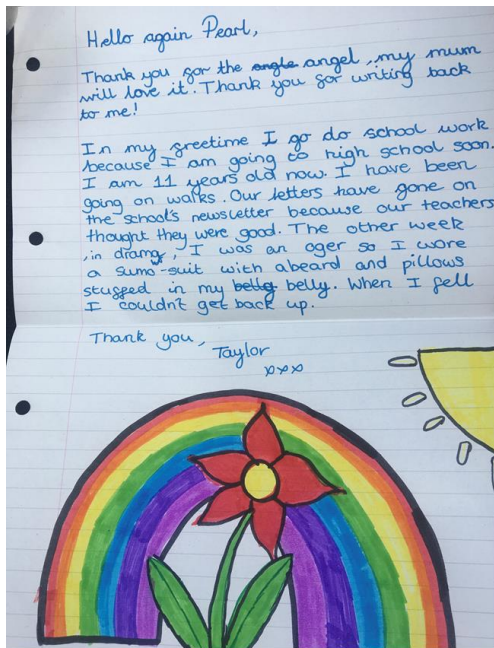 Hello again Pearl,
Thank you for the angle angel, my mum
will love it. Thank you for writing back
to me!
In my freetime I go do school work
because I am going to high school soon.
I am 11 years old now. I have been
going on walks. Our letters have gone on
the school's newsletter because our teachers
thought they were good. The other week
, in drama, I was an oger so I wore
a sumo-suit with abeard and pillows
stuffed in my belly. When I fell
I couldn't get back up.
Thank you,
Taylor
xxx